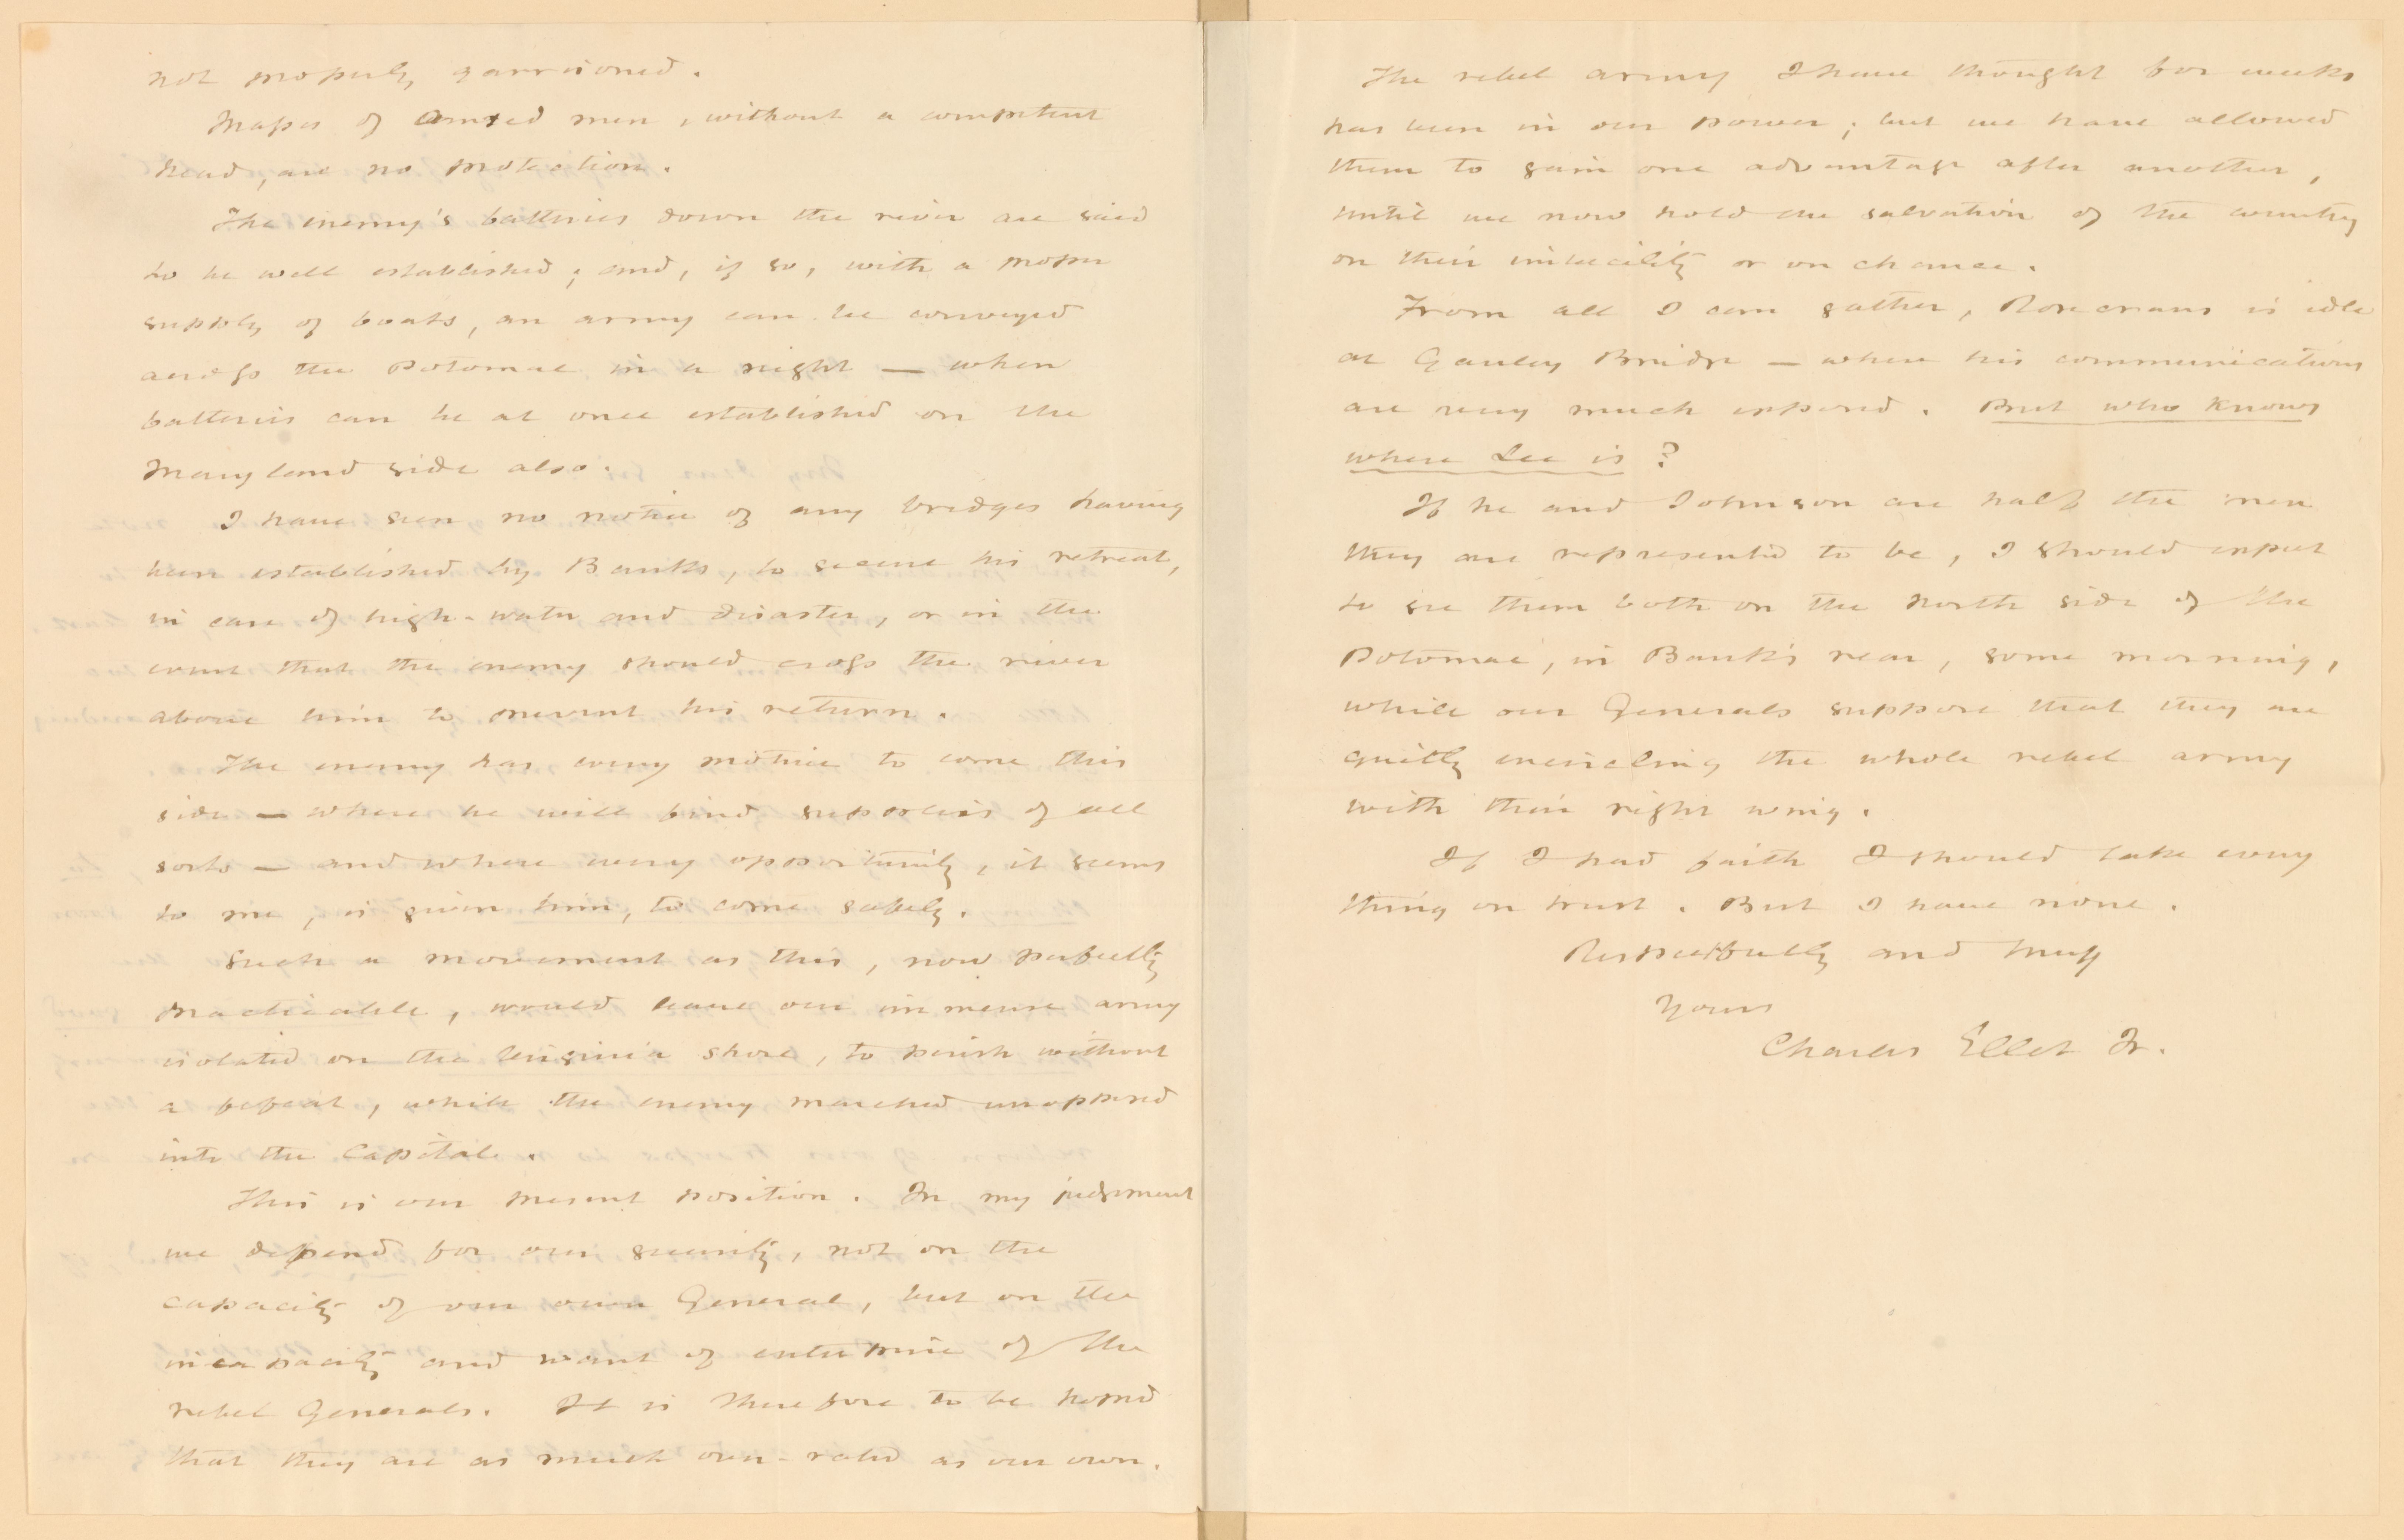 not properly garrisoned.
Masses of armed men, without a competent
head, are no protection.
The enemy's batteries down the river are said
to be well established; and, if so, with a proper
supply of boats, an army can be conveyed
across the Potomac in a night — when
batteries can be at once established on the
Maryland side also.
I have seen no notice of any bridges having
been established by Banks, to secure his retreat,
in case of high-water and disaster, or in the
event that the enemy should cross the river
above him to prevent his return.
The enemy has every motive to come this
side — where he will find supplies of all
sorts — and where every opportunity, it seems
to me, is given him, to come safely.
Such a movement as this, now perfectly
practicable, would leave our immense army
isolated on the Virginia shore, to perish without
a defeat, while the enemy marched unopposed
into the Capital.
This is our present position. In my judgment
we depend for our security, not on the
capacity of our own General, but on the
incapacity and want of enterprise of the
rebel Generals. It is therefore to be hoped
that they are as much over-rated as our own.
The rebel army I have thought for weeks
has been in our power; but we have allowed
them to gain one advantage after another,
until we now hold the salvation of the country
on their imbecility or on chance.
From all I can gather, Rosecrans is idle
at Gauley Bridge — where his communications
are very much exposed. But who knows
where Lee is?
If he and Johnson are half the men
they are represented to be, I should expect
to see them both on the north side of the
Potomac, in Bank's rear, some morning,
while our Generals suppose that they are
quietly encircling the whole rebel army
with their right wing.
If I had faith I should take every
thing on trust. But I have none.
Respectfully and truly
Yours
Charles Ellet Jr.